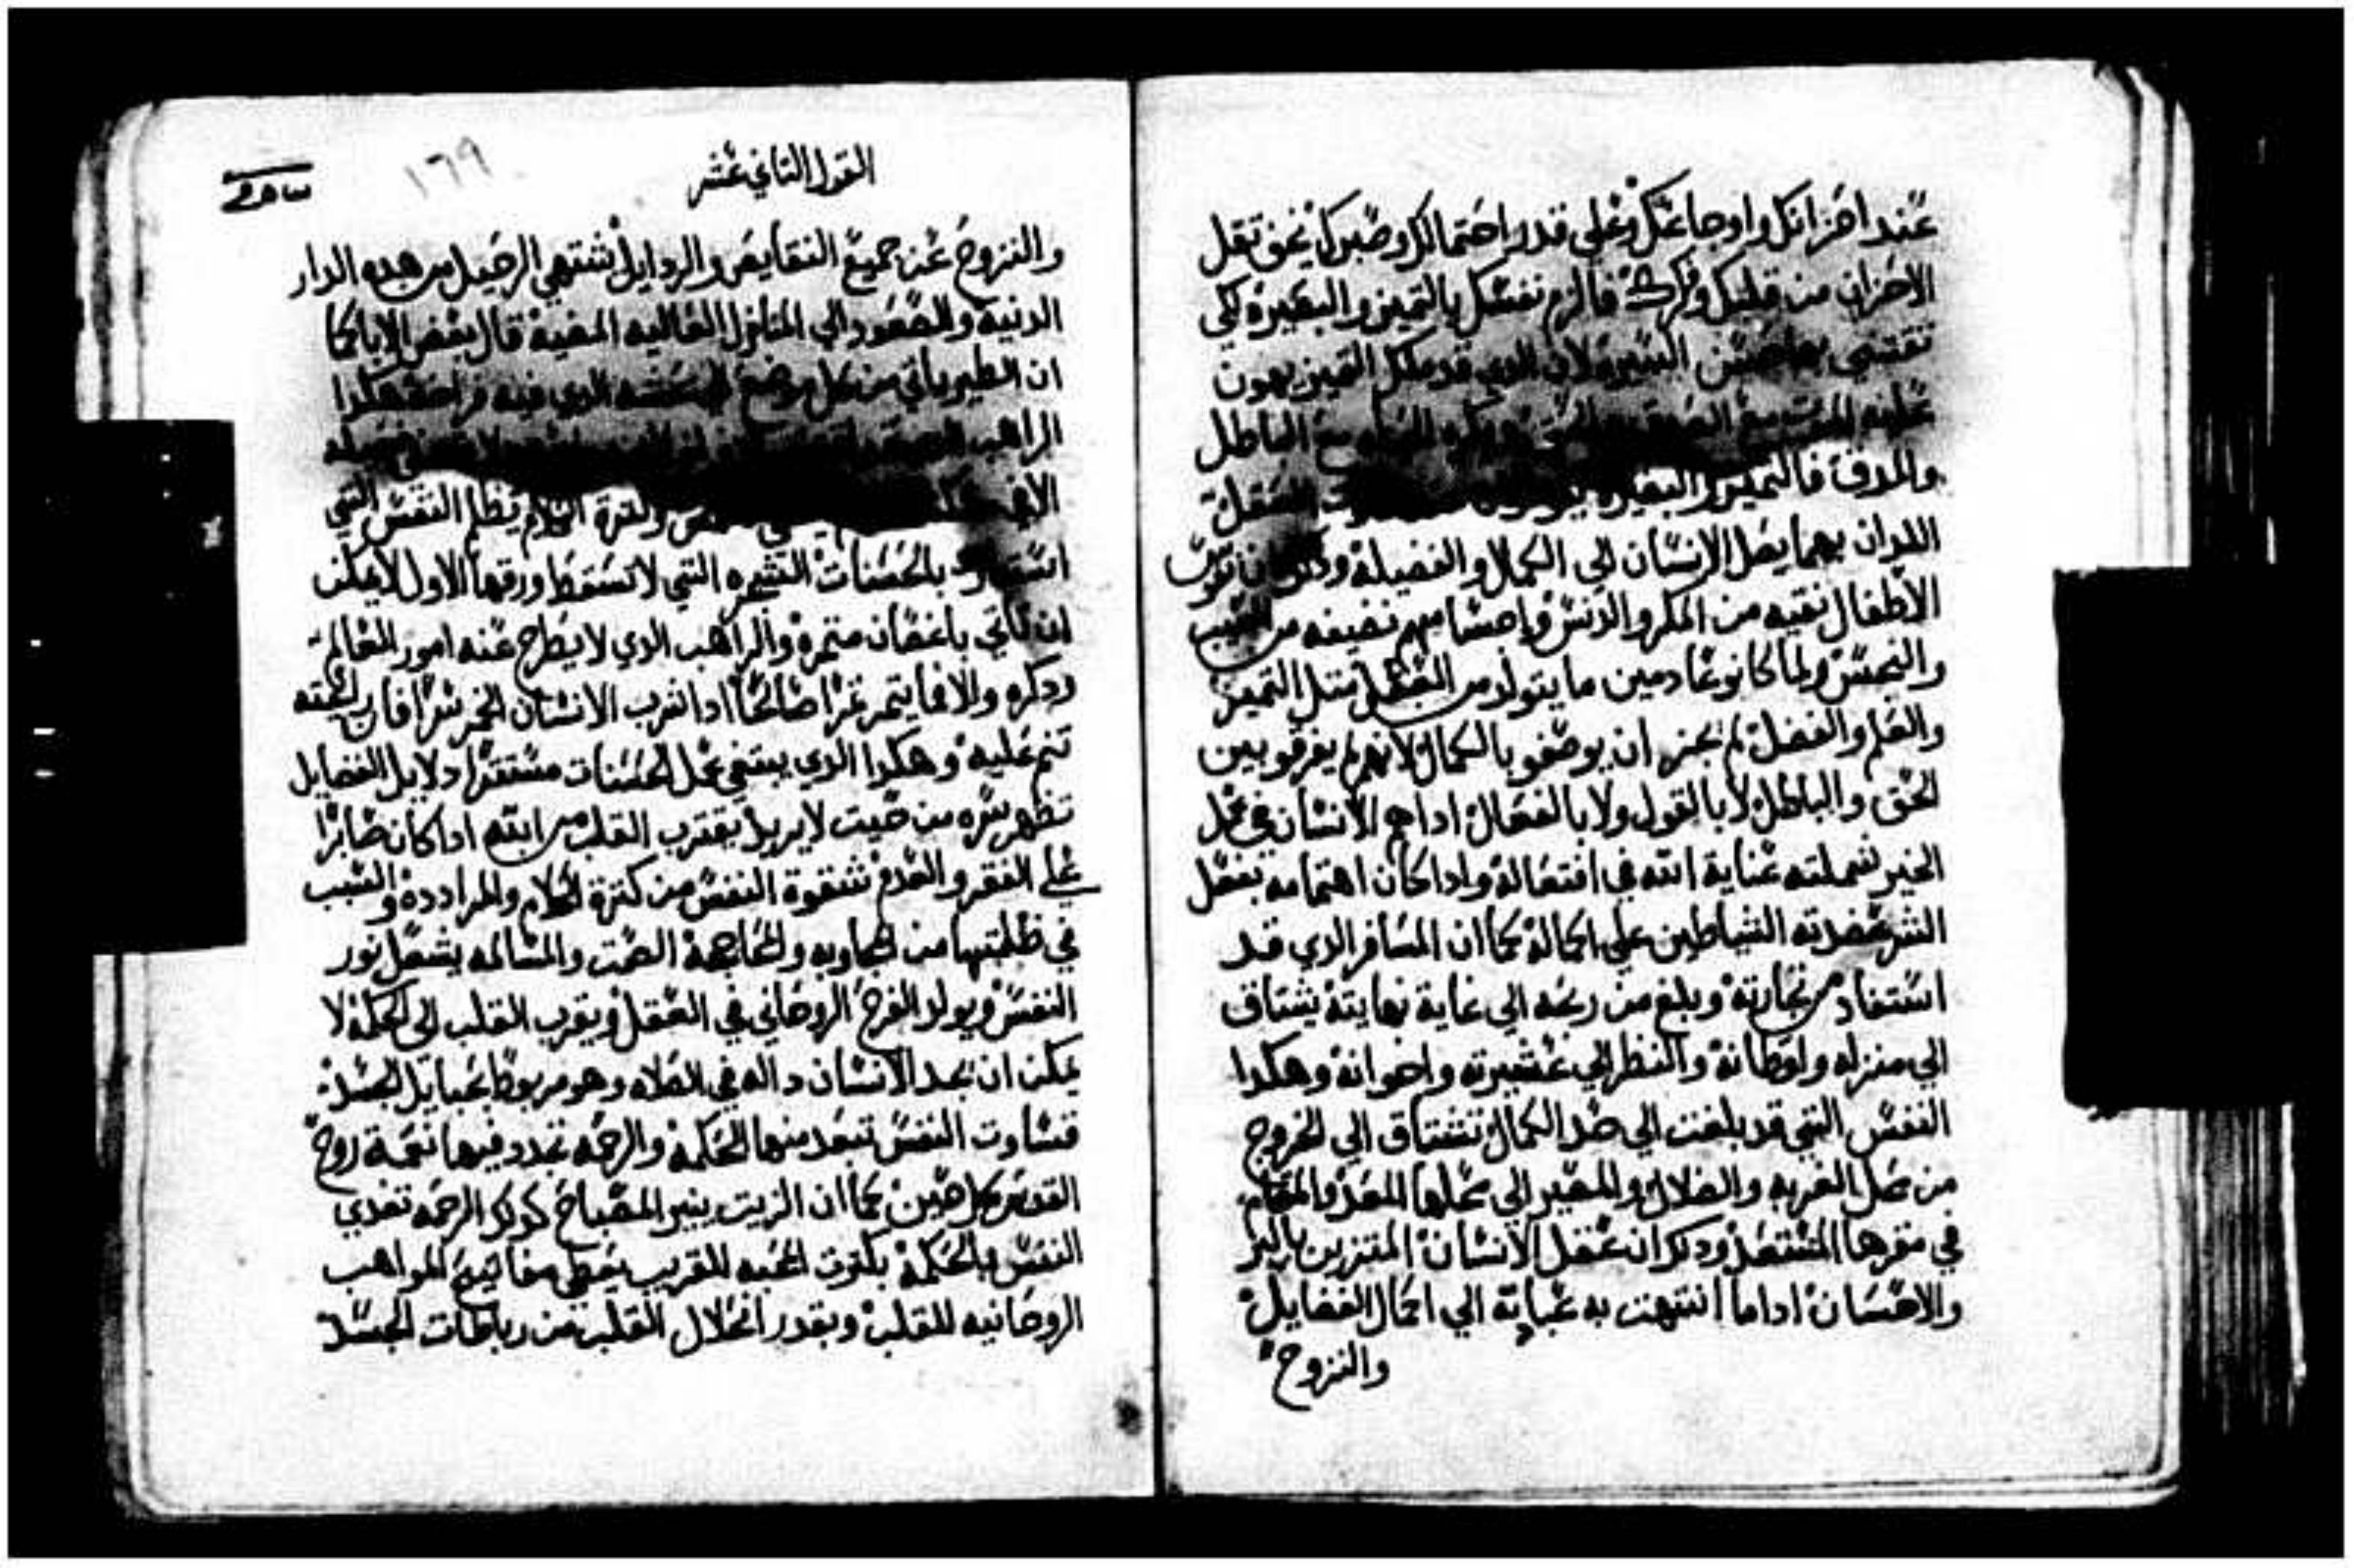 عند احزانك واوجاعك وعلي قدر احتمالك وصبرك نحن تقل
الاحزان من قلبك وفكرك فالزم نفسك بالتميز والبصيره لكي
تقتني بها حسن السيره لان الدي قد ملك التميز يهون
عليه الباطل
والمدق فالتميز العقل
اللدان بهما يصل الانسان الي الكمال والفضيله نفوس
الاطفال نقيه من المكر والدنس واجسامهم نضيفه من العيب
والنجس ولما كانو عادمين ما يتولد من العقل متل التميز
والعلم والفضل لم يجز ان يوصفو بالكمال لانهم لم يفرقو بين
الحق والباطل لا بالقول ولا بالفعال ادا هم الانسان في عمل
الخير شملته عناية الله في افتعاله وادا كان اهتمامه بفعل
الشر عضدته الشياطين علي اكماله كما ان المسافر الدي قد
استفاد من تجارته وبلغ من ربحه الي غاية نهايته يشتاق
الي منزله واوطانه والنظر الي عشيرته واخوانه وهكدا
النفس التي قد بلغت الي حد الكمال تشتاق الي الخروج
من محل الغربه والضلال والمصير الي محلها المعد والمقام
في مقرها المستعد ودكر ان عقل الانسان المتزين بالبر
والاحسان ادا ما انتهت به غباته الي اكمال الفضايل
والنزوح
القول التاني عشر
١٦٩
والنزوح عن جميع النقايص والردايل تشتهي الرحيل من هده الدار
الدنيه والصعود الي المنازل العاليه المضيه قال بعض الابا كما
ان الطير ياتي من كل موضع الدي فيه راحته هكدا
الراهب
وكترة الكلام يظلم النفس التي
بالحسنات الشجره التي لا تسقط ورقها الاول لا يمكن
ان تاتي باغصان متمره والراهب الدي لا يطرح عنه امور العالم
ودكره والا فما يتمر تمرا صالحا ادا شرب الانسان الخمر سرا فان رايحته
تنم عليه وهكدا الدي يبتغي عمل الحسنات مستترا دلايل الفضايل
تظهر سره من حيت لا يريد يقترب القلب من الله ادا كان صابرا
علي الفقر والعدم شقوة النفس من كترة الكلام والمراددة والسبب
في ظلمتها من المجاوبه والمحاججة الصمت والمسالمه يشعل نور
النفس ويولد الفرح الروحاني في العقل ويقرب القلب الي الحكمة لا
يمكن ان يجد الانسان داله في الصلاه وهو مربوط بحبايل الجسد
قساوت النفس تبعد منها الحكمة والرحمه تجدد فيها نعمة روح
القدس كل حين كما ان الزيت ينير المصباح كدلك الرحمه تغدي
النفس بالحكمة بكترت المحبه للقريب يعطي مفاتيح المواهب
الروحانيه للقلب وبقدر انحلال القلب من رباطات الجسد